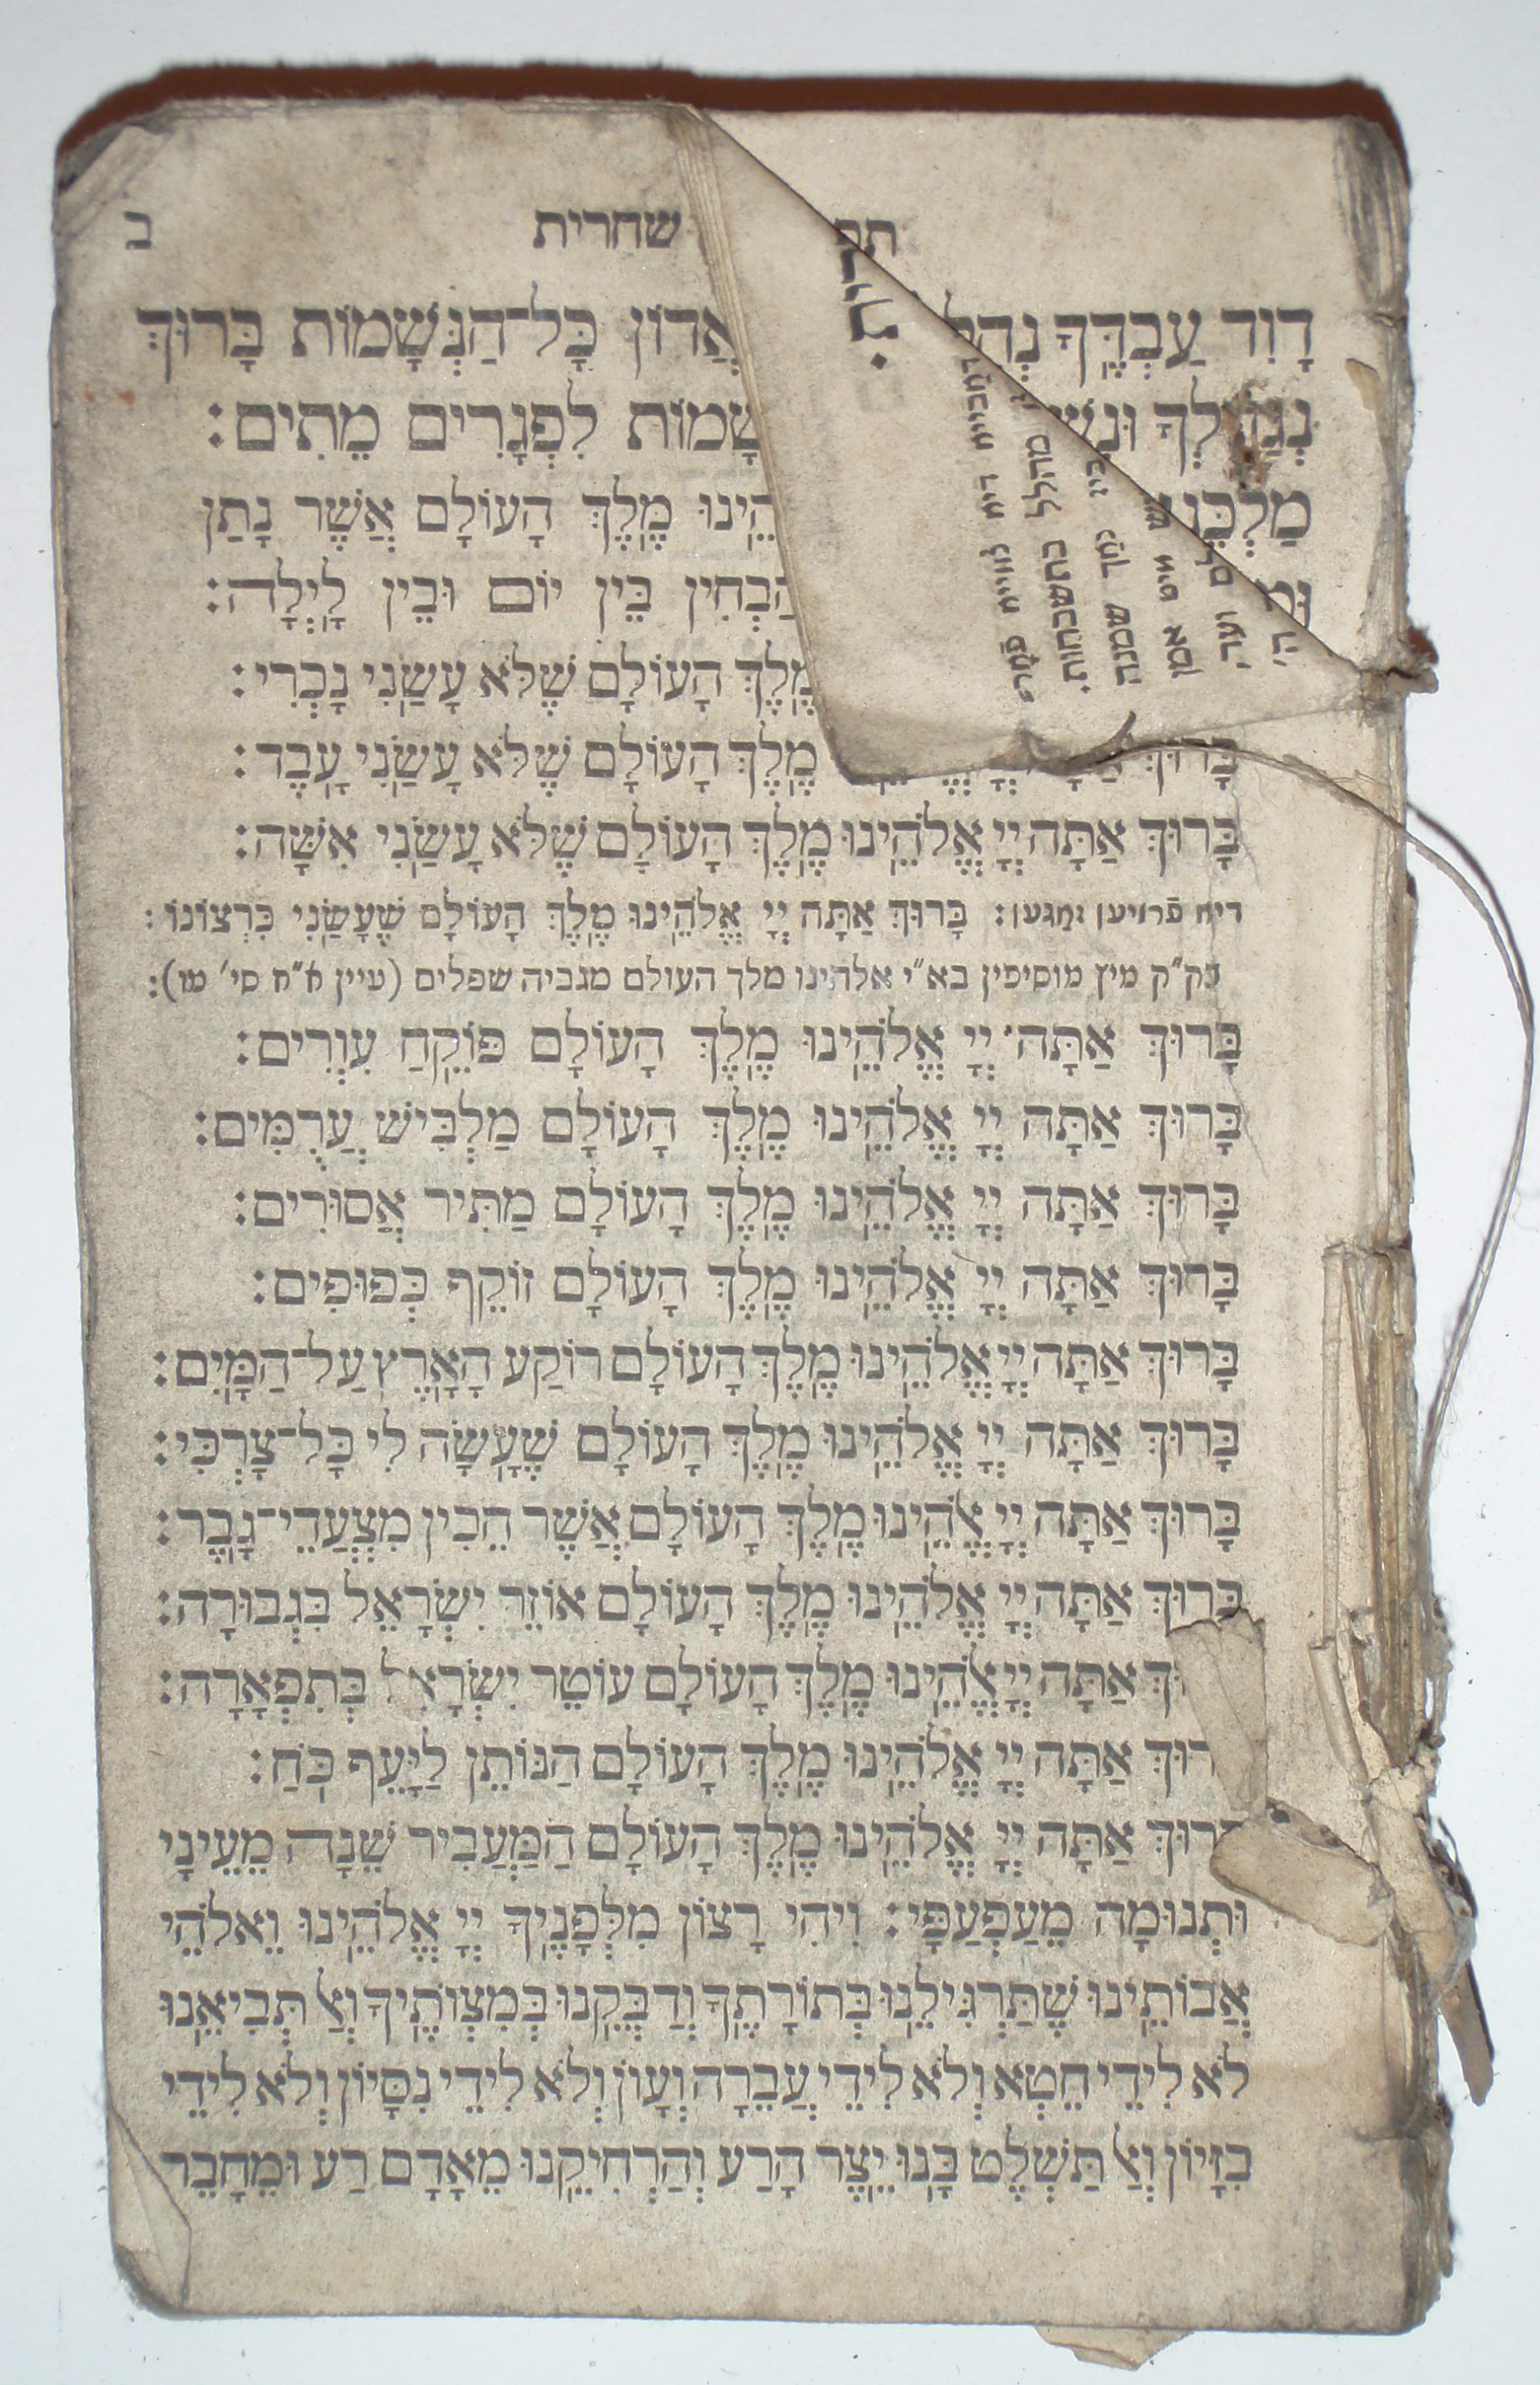 שחרית ב
דָוִד עַבְדֶּךָ אֲדוֹן כָּל־הַנְּשָׁמוֹת בָּרוּךְ
לִפְגָרִים מֵתִים:
מֶלֶךְ הָעוֹלָם אֲשֶׁר נָתַן
בֵּין יוֹם וּבֵין לָיְלָה:
מֶלֶךְ הָעוֹלָם שֶׁלֹּא עָשַׂנִי נָכְרִי:
בָּרוּךְ מֶלֶךְ הָעוֹלָם שֶׁלֹּא עָשַׂנִי עָבֶד:
בָּרוּךְ אַתָּה יְיָ אֱלֹהֵינוּ מֶלֶךְ הָעוֹלָם שֶׁלֹּא עָשַׂנִי אִשָּׁה:
דיא פרויען זאגען: בָּרוּךְ אַתָּה יְיָ אֱלֹהֵינוּ מֶלֶךְ הָעוֹלָם שֶׁעָשַׂנִי כִּרְצוֹנוֹ:
בק״ק מיץ מוסיפין בא״י אלהינו מלך העולם מגביה שפלים (עיין א״ח סי׳ מו):
בָּרוּךְ אַתָּה יְיָ אֱלֹהֵינוּ מֶלֶךְ הָעוֹלָם פּוֹקֵחַ עִוְרִים:
בָּרוּךְ אַתָּה יְיָ אֱלֹהֵינוּ מֶלֶךְ הָעוֹלָם מַלְבִּישׁ עֲרֻמִּים:
בָּרוּךְ אַתָּה יְיָ אֱלֹהֵינוּ מֶלֶךְ הָעוֹלָם מַתִּיר אֲסוּרִים:
בָּרוּךְ אַתָּה יְיָ אֱלֹהֵינוּ מֶלֶךְ הָעוֹלָם זוֹקֵף כְּפוּפִים:
בָּרוּךְ אַתָּה יְיָ אֱלֹהֵינוּ מֶלֶךְ הָעוֹלָם רוֹקַע הָאָרֶץ עַל־הַמָּיִם:
בָּרוּךְ אַתָּה יְיָ אֱלֹהֵינוּ מֶלֶךְ הָעוֹלָם שֶׁעָשָׂה לִי כָּל־צָרְכִּי:
בָּרוּךְ אַתָּה יְיָ אֱלֹהֵינוּ מֶלֶךְ הָעוֹלָם אֲשֶׁר הֵכִין מִצְעֲדֵי־גָבֶר:
בָּרוּךְ אַתָּה יְיָ אֱלֹהֵינוּ מֶלֶךְ הָעוֹלָם אוֹזֵר יִשְׂרָאֵל בִּגְבוּרָה:
אַתָּה יְיָ אֱלֹהֵינוּ מֶלֶךְ הָעוֹלָם עוֹטֵר יִשְׂרָאֵל בְּתִפְאָרָה:
אַתָּה יְיָ אֱלֹהֵינוּ מֶלֶךְ הָעוֹלָם הַנּוֹתֵן לַיָּעֵף כֹּחַ:
בָּרוּךְ אַתָּה יְיָ אֱלֹהֵינוּ מֶלֶךְ הָעוֹלָם הַמַּעֲבִיר שֵׁנָה מֵעֵינָי
וּתְנוּמָה מֵעַפְעַפָּי: וִיהִי רָצוֹן מִלְּפָנֶיךָ יְיָ אֱלֹהֵינוּ וֵאלֹהֵי
אֲבוֹתֵינוּ שֶׁתַּרְגִּילֵנוּ בְּתוֹרָתֶךָ וְדַבְּקֵנוּ בְּמִצְוֹתֶיךָ וְאַל תְּבִיאֵנוּ
לֹא לִידֵי חֵטְא וְלֹא לִידֵי עֲבֵרָה וְעָוֹן וְלֹא לִידֵי נִסָּיוֹן וְלֹא לִידֵי
בִזָּיוֹן וְאַל תַּשְׁלֶט בָּנוּ יֵצֶר הָרַע וְהַרְחִיקֵנוּ מֵאָדָם רַע וּמֵחָבֵר